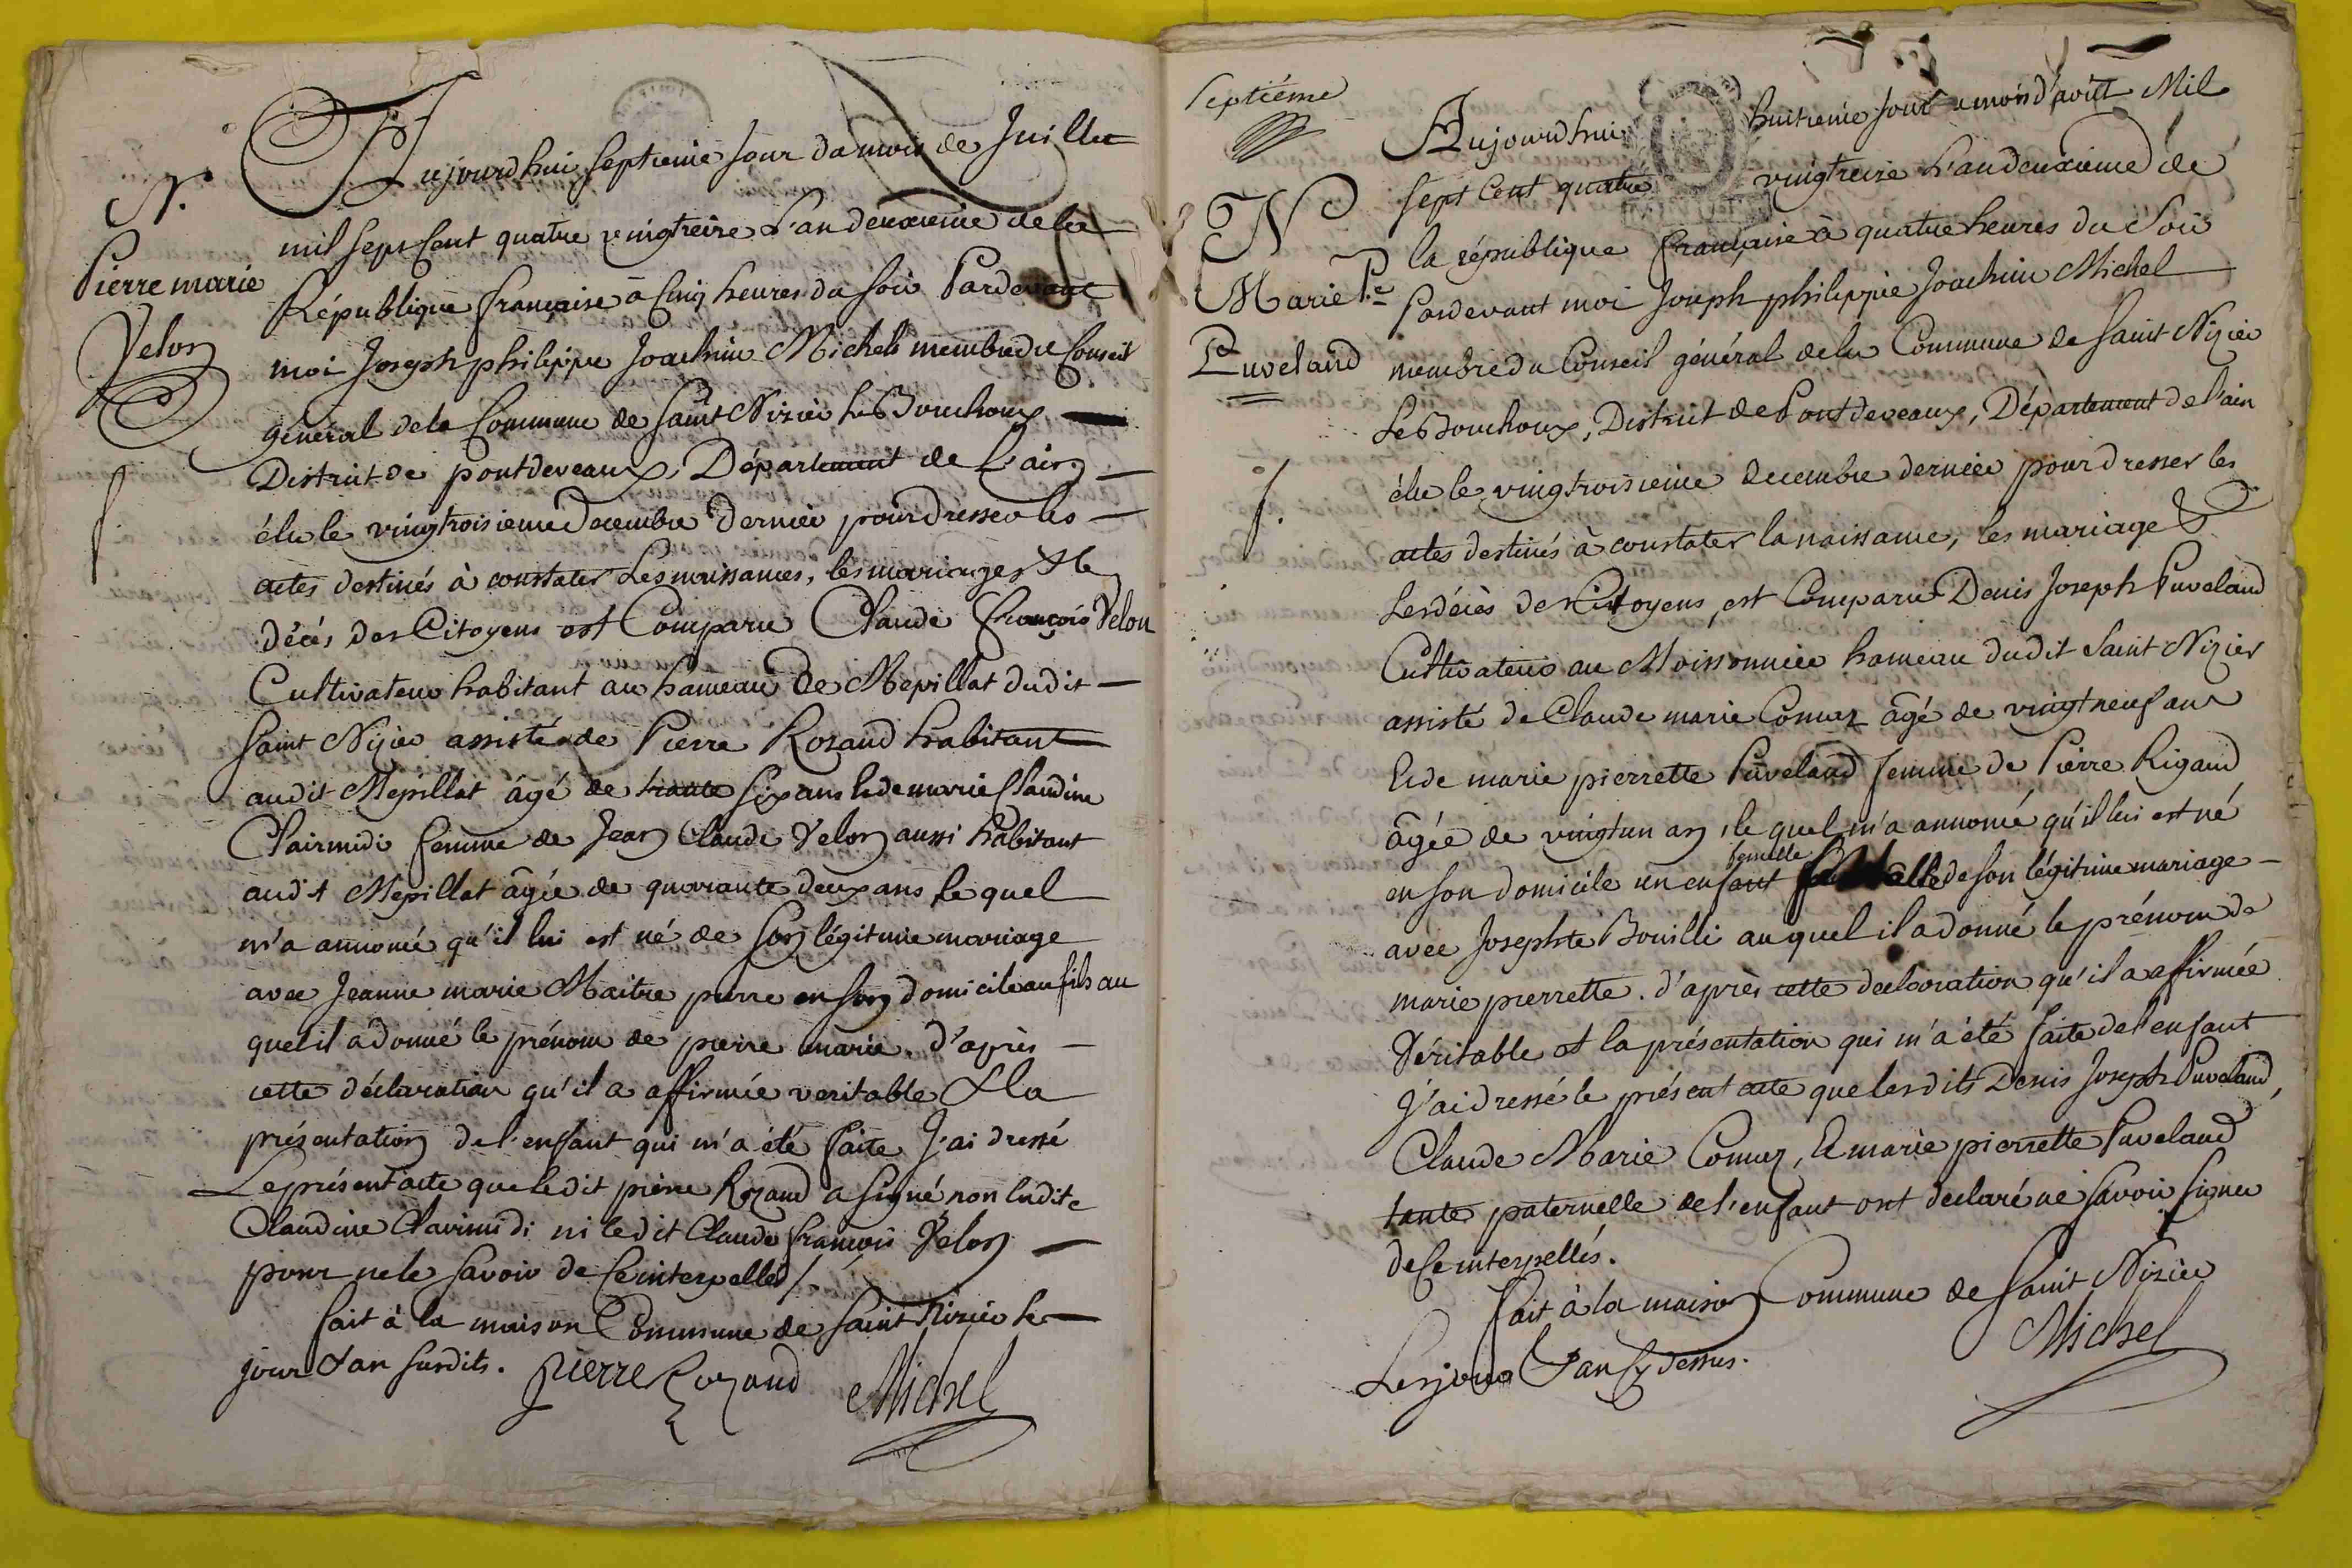 N.
Pierre marie
Velon
Aujourdhui septieme jour du mois de Juillet
mil sept Cent quatre vingtreize L'an deuxieme de la
République française à Cinq heures du soir Pardevant
moi Joseph philippe Joachim Michel membre du Conseil
général de la Commune de Saint Nizier le Bouchoux
District de pontdevaux, Département de L'ain
élu le vingtroisieme Decembre dernier pour dresser les
actes destinés à constater Les naissances, les mariages & le
décès des Citoyens est Comparu Claude François Velon
Cultivateur habitant au hameau De Mepillat dudit
Saint Nizier assisté de Pierre Rozand habitant
audit Mepillat âgé de trante six ans & de marie Claudine
Clairmidi femme de Jean Claude Velon aussi habitant
audit Mepillat âgée de quarante deux ans Le quel
m'a annoncé qu'il lui est né de son légitime mariage
avec Jeanne marie Maitre pierre en son domicile un fils au
quel il a donné le prénom de pierre marie. d'après
cette déclaration qu'il a affirmée veritable & la
présentation de l'enfant qui m'a été faite J'ai dressé
Le présent acte que ledit pierre Rozand a signé non ladite
Claudine Clairmidi ni ledit Claude françois Velon
pour ne le savoir de Ce interpellés /.
fait à la maison Commune de Saint Nizier le
jour & an susdits. pierre Rozand Michel
septiéme
N
Marie P.e
Puveland
Aujourdhui huitieme jour du mois d'août Mil
sept Cent quatre vingtreize L'an deuxieme de
la république française à quatre heures du Soir
Pardevant moi Joseph philippe Joachim Michel
membre du Conseil général de la Commune de Saint Nizier
Le Bouchoux, District de Pontdeveaux, Département de l'ain
élu le vingtroisieme decembre dernier pour dresser les
actes destinés à constater la naissance, les mariage &
Les décès des Citoyens, est Comparu Denis Joseph Puveland
Cultivateur au Moissonnier hameau dudit Saint Nizier
assisté de Claude marie Comuz âgé de vingt neuf ans
& de marie pierrette Puveland femme de Pierre Rigaud
âgée de vingtun an, le quel m'a annoncé qu'il lui est né
femelle
en son domicile un enfant de son légitime mariage
avec Josephte Bouilli auquel il a donné le prénom de
marie pierrette. d'après cette declaration qu'il a affirmée
Véritable et la présentation qui m'a été faite de l'enfant
J'ai dressé le présent acte que lesdits Denis Joseph Puveland,
Claude Marie Comuz, & marie pierrette Puveland
tante paternelle de l'enfant ont declaré ne savoir signer
de Ce interpellés.
fait à la maison Commune de Saint Nizier
Les jour & an Cy dessus. Michel